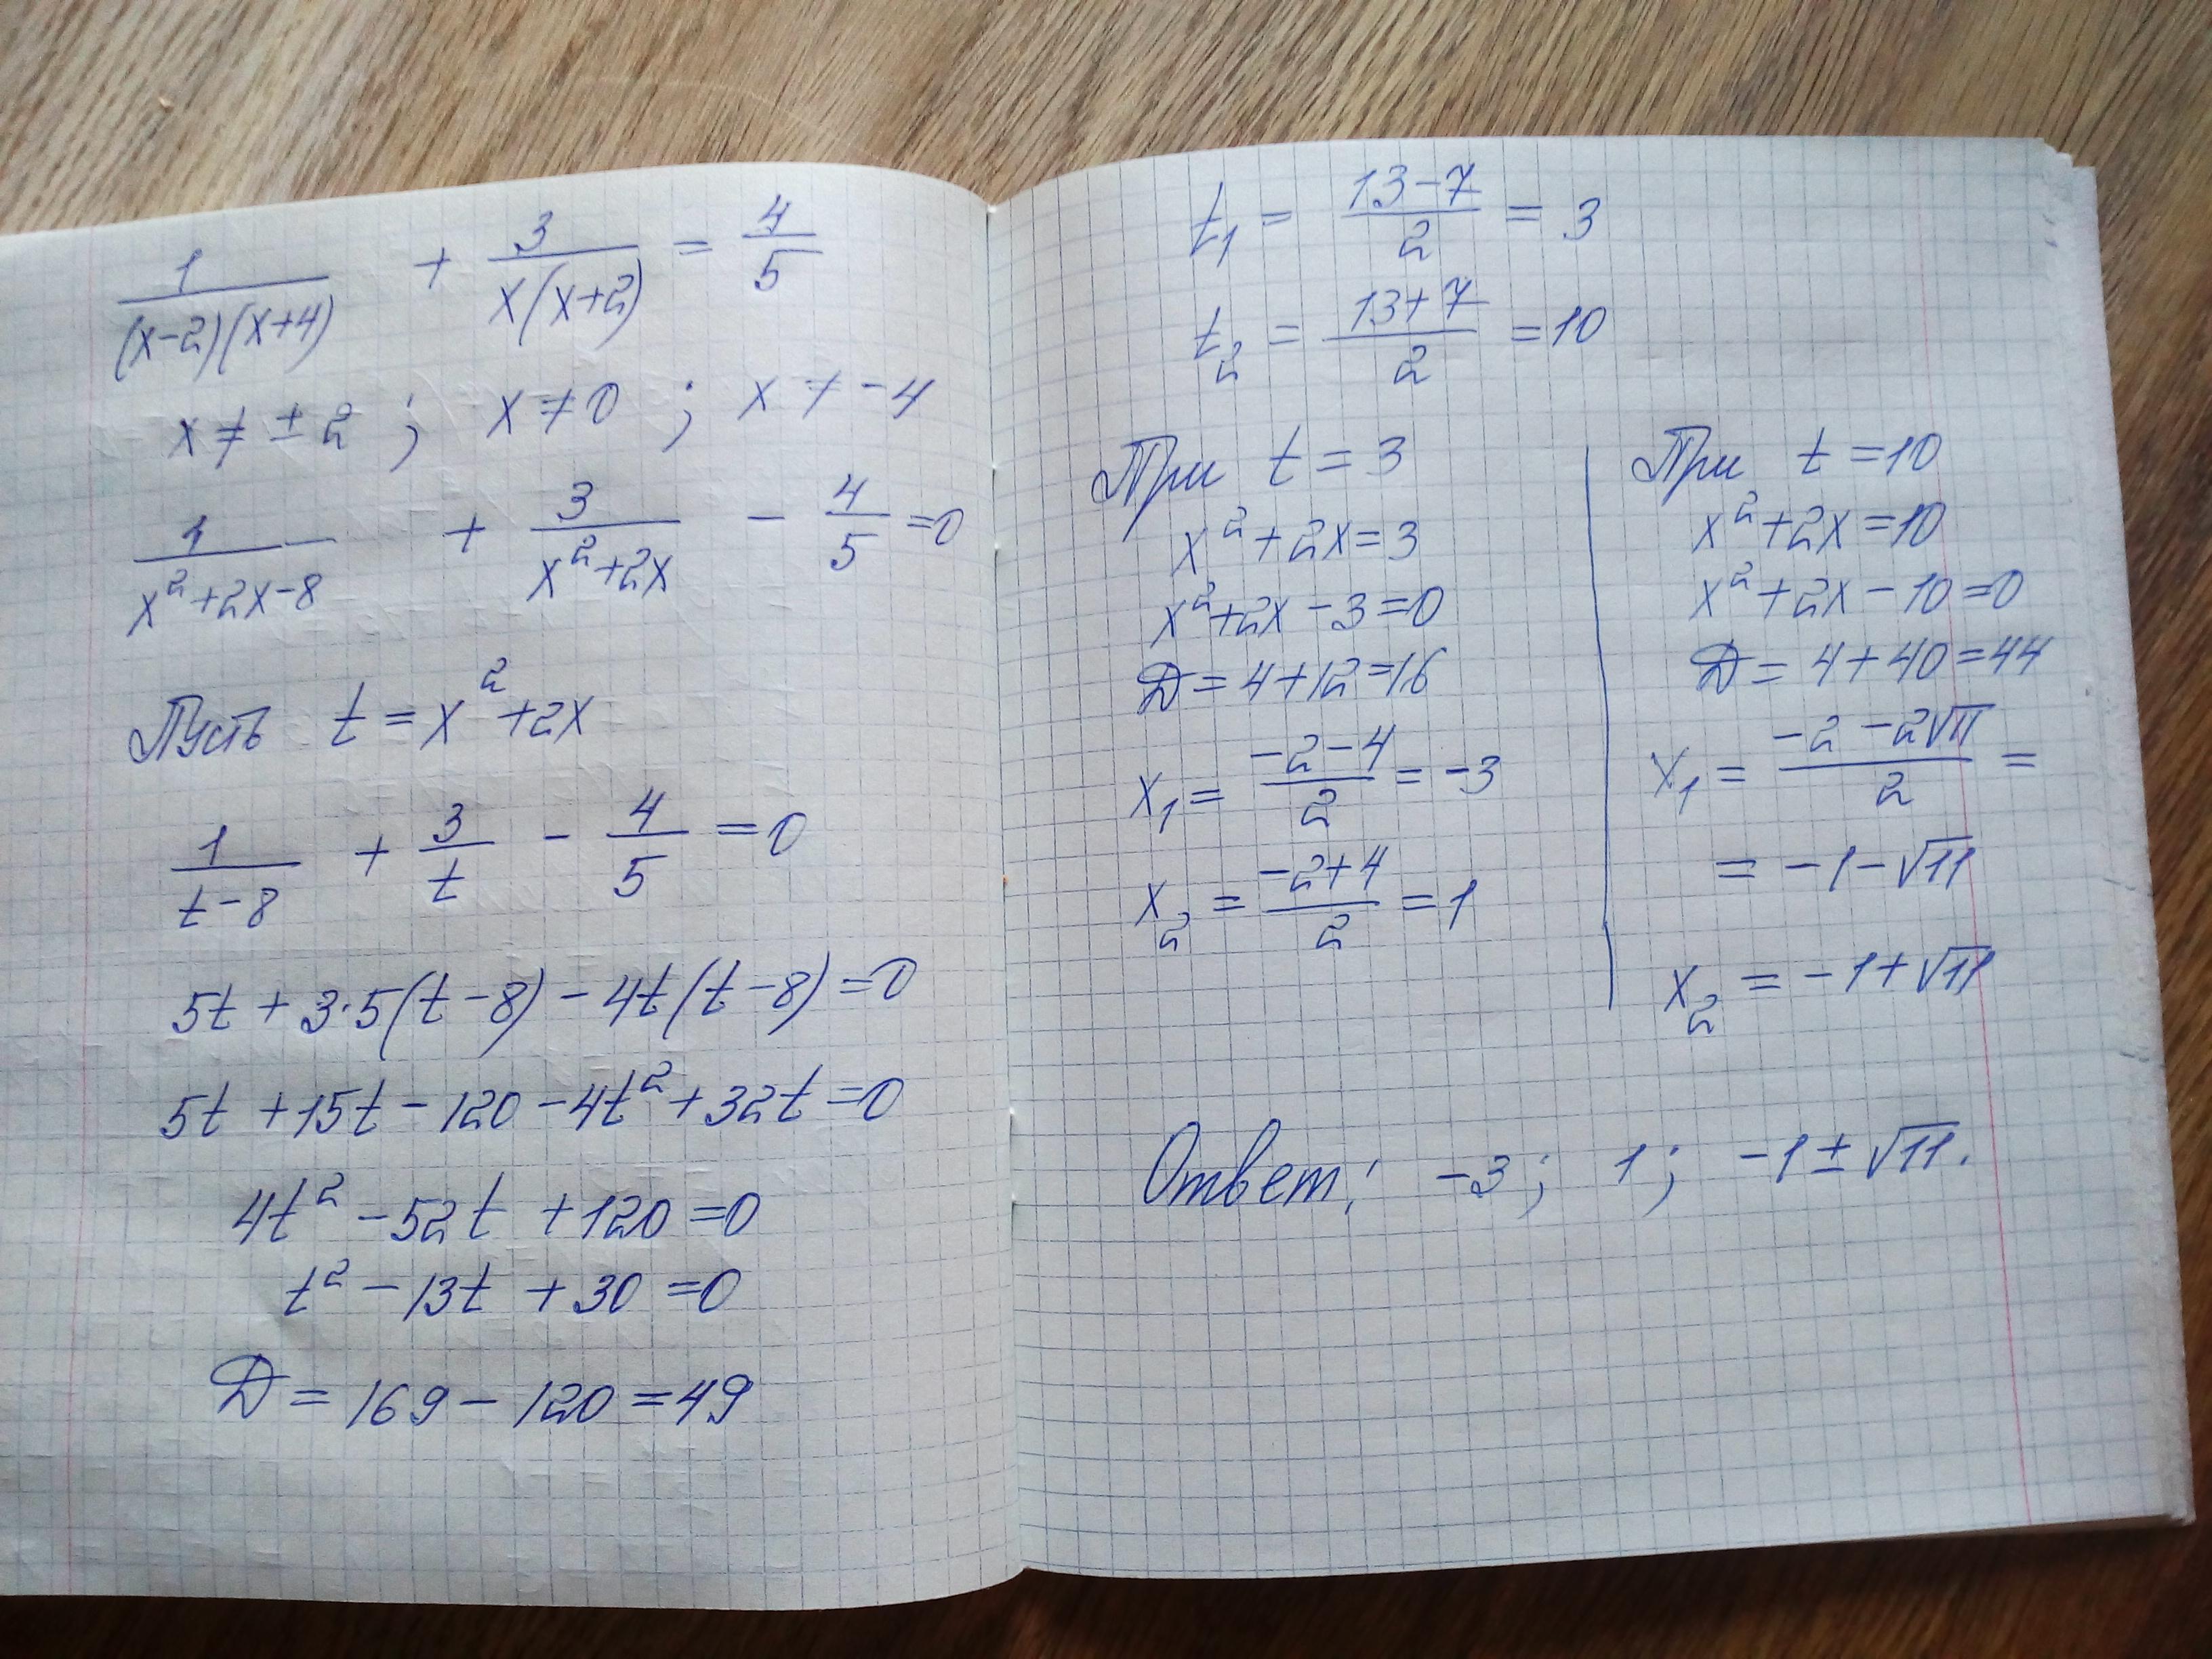 1/((x-2)(x+4)) + 3/(x(x+2)) = 4/5
x ≠ ±2 ; x ≠ 0 ; x ≠ -4
1/(x²+2x-8) + 3/(x²+2x) - 4/5 = 0
Пусть t = x²+2x
1/(t-8) + 3/t - 4/5 = 0
5t + 3·5(t-8) - 4t(t-8) = 0
5t + 15t - 120 - 4t² + 32t = 0
4t² - 52t + 120 = 0
t² - 13t + 30 = 0
D = 169 - 120 = 49
t₁ = (13-7)/2 = 3
t₂ = (13+7)/2 = 10
При t = 3
x²+2x = 3
x²+2x-3 = 0
D = 4+12 = 16
x₁ = (-2-4)/2 = -3
x₂ = (-2+4)/2 = 1
При t = 10
x²+2x = 10
x²+2x-10 = 0
D = 4+40 = 44
x₁ = (-2-2√11)/2 =
= -1-√11
x₂ = -1+√11
Ответ: -3; 1; -1±√11.